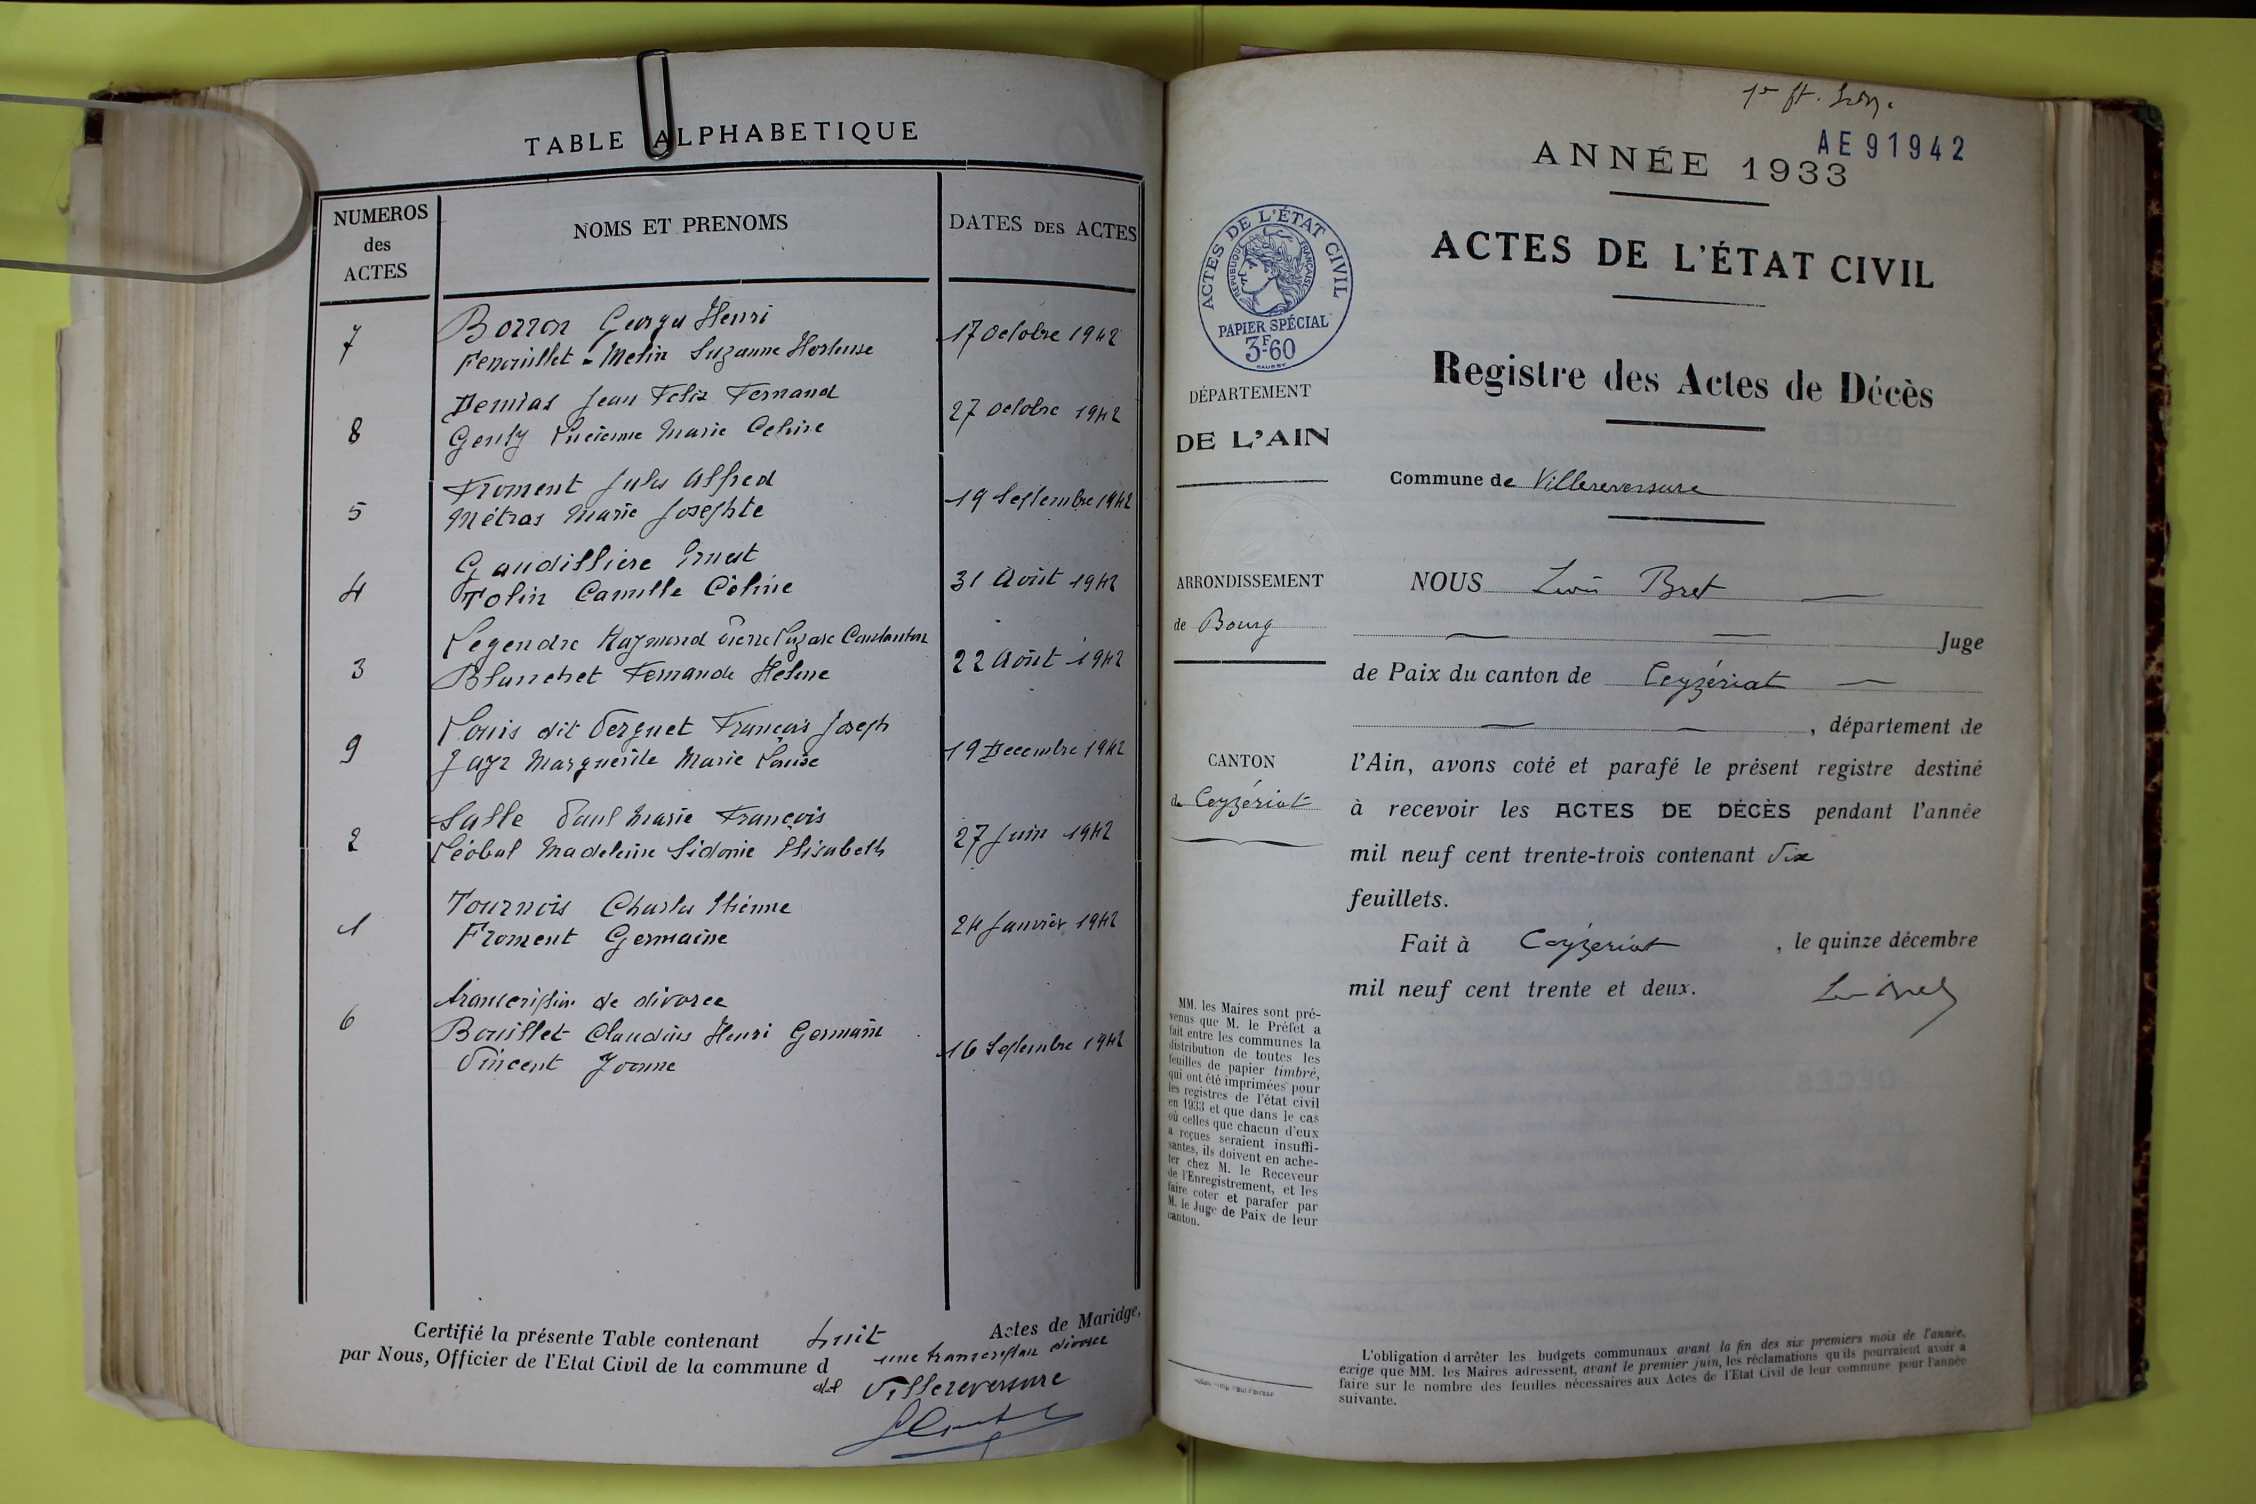 TABLE ALPHABETIQUE
NUMEROS des ACTES
NOMS ET PRENOMS
DATES DES ACTES
7
Borron Georges Henri
Fenouillet - Metin Suzanne Hortense
17 Octobre 1942
8
Demias Jean Felix Fernand
Genty Lucienne Marie Celine
27 Octobre 1942
5
Froment Jules Alfred
Métras Marie Josephte
19 Septembre 1942
4
Gaudilliere Ernest
Tolin Camille Céline
31 Août 1942
3
Legendre Raymond Pierre Constantin
Blanchet Fernande Helene
22 Août 1942
9
Louis dit Verguet François Joseph
Jayr Marguerite Marie Louise
19 Decembre 1942
2
Salle Paul Marie François
Léobal Madeleine Sidonie Elisabeth
27 Juin 1942
1
Tournois Charles Etienne
Froment Germaine
24 Janvier 1942
6
transcription de divorce
Bouillet Claudius Henri Germain
Vincent Yvonne
16 Septembre 1942
Certifié la présente Table contenant huit Actes de Mariage,
une transcription divorce
par Nous, Officier de l'Etat Civil de la commune d
de Villereversure
AE 91942
ANNÉE 1933
ACTES DE L'ÉTAT CIVIL
RÉPUBLIQUE FRANÇAISE
PAPIER SPÉCIAL
3F-60
ACTES DE L'ÉTAT CIVIL
Registre des Actes de Décès
DÉPARTEMENT
DE L'AIN
Commune de Villereversure
ARRONDISSEMENT
de Bourg
CANTON
de Ceyzériat
NOUS Louis Bret
Juge
de Paix du canton de Ceyzériat
, département de
l'Ain, avons coté et parafé le présent registre destiné
à recevoir les ACTES DE DÉCÈS pendant l'année
mil neuf cent trente-trois contenant dix
feuillets.
Fait à Ceyzériat , le quinze décembre
mil neuf cent trente et deux.
MM. les Maires sont pré-
venus que M. le Préfet a
fait entre les communes la
distribution de toutes les
feuilles de papier timbré,
qui ont été imprimées pour
les registres de l'état civil
en 1933 et que dans le cas
où celles que chacun d'eux
a reçues seraient insuffi-
santes, ils doivent en ache-
ter chez M. le Receveur
de l'Enregistrement, et les
faire coter et parafer par
M. le Juge de Paix de leur
canton.
L'obligation d'arrêter les budgets communaux avant la fin des six premiers mois de l'année,
exige que MM. les Maires adressent, avant le premier juin, les réclamations qu'ils pourraient avoir à
faire sur le nombre des feuilles nécessaires aux Actes de l'Etat Civil de leur commune pour l'année
suivante.